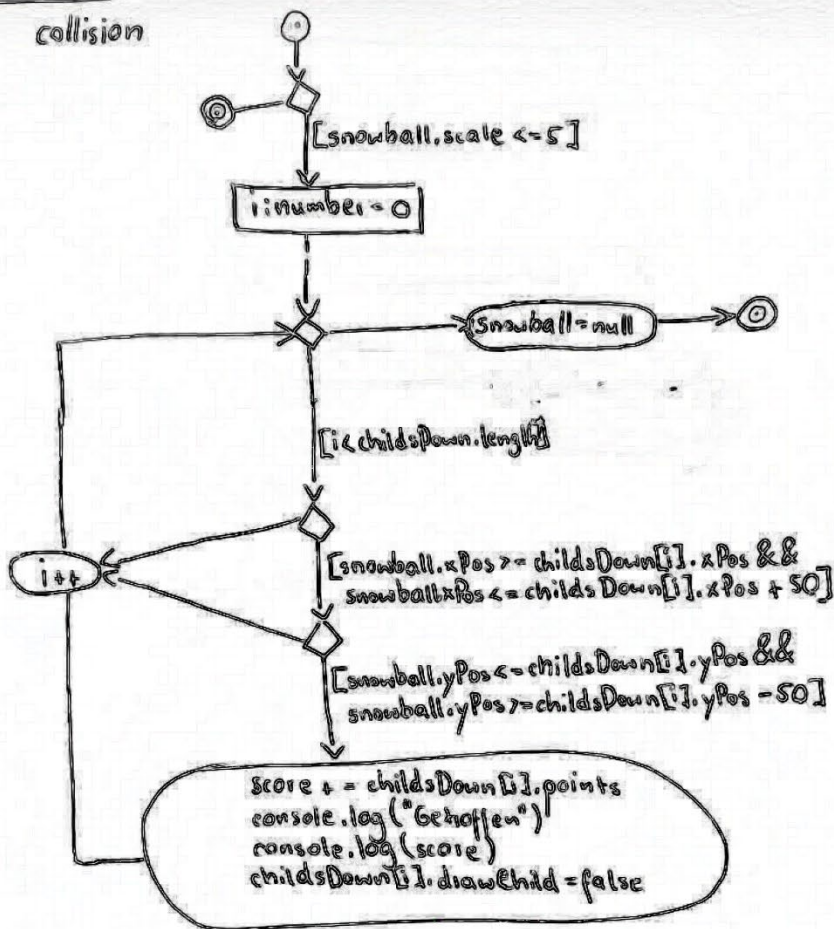 collision
[snowball.scale <= 5]
i:number = 0
snowball = null
[i < childsDown.length]
[snowball.xPos >= childsDown[i].xPos &&
snowball.xPos <= childsDown[i].xPos + 50]
i++
[snowball.yPos <= childsDown[i].yPos &&
snowball.yPos >= childsDown[i].yPos - 50]
score += childsDown[i].points
console.log("Getroffen")
console.log(score)
childsDown[i].drawChild = false